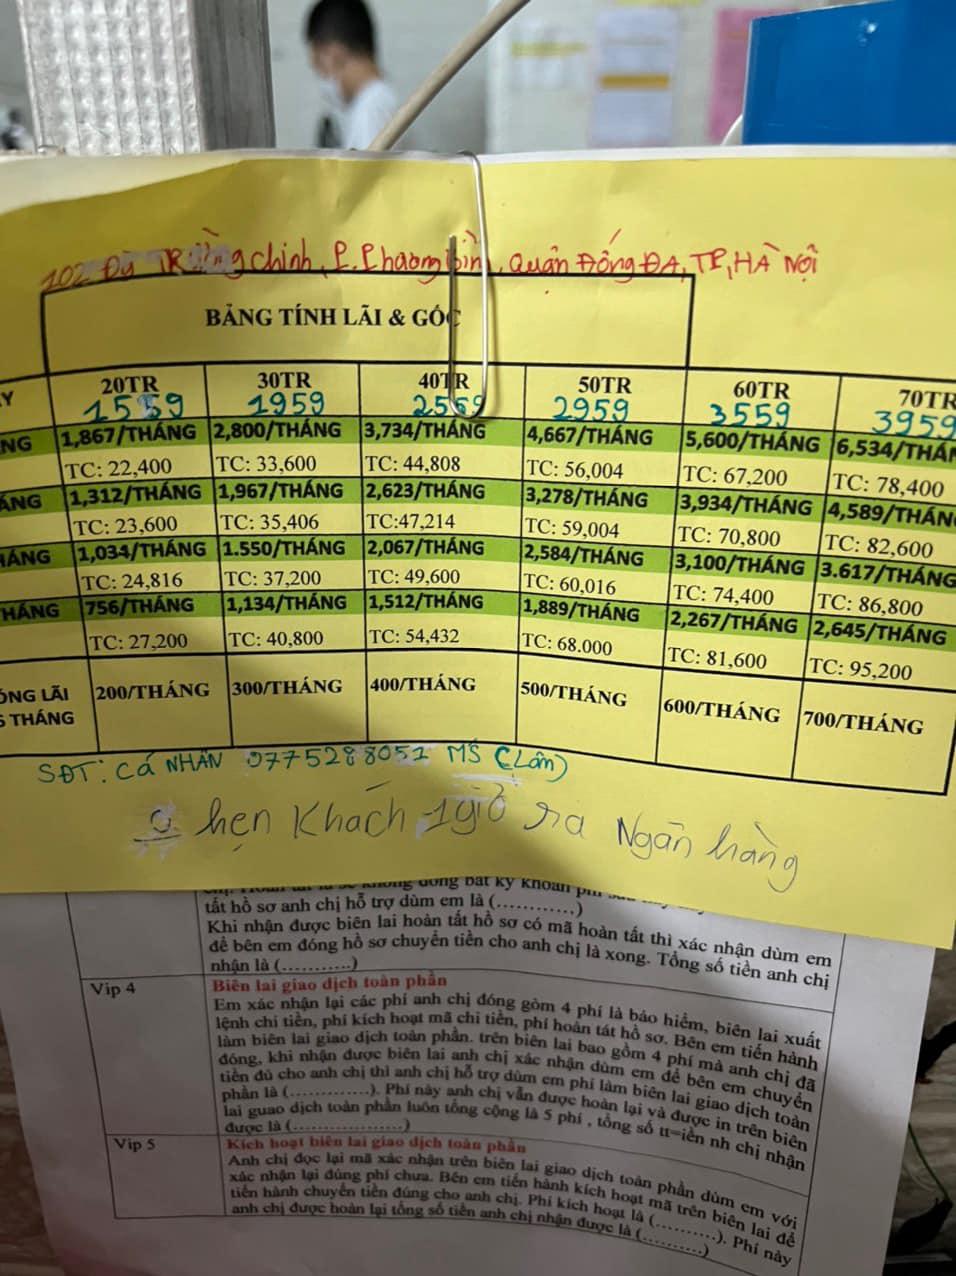 102 Đg Trường chinh, P. Phương, Quận Đống ĐA, TP, HÀ Nội
BẢNG TÍNH LÃI & GỐC
Y 20TR 30TR 40TR 50TR 60TR 70TR
1559 1959 2559 2959 3559 3959
NG 1,867/THÁNG 2,800/THÁNG 3,734/THÁNG 4,667/THÁNG 5,600/THÁNG 6,534/THÁN
TC: 22,400 TC: 33,600 TC: 44,808 TC: 56,004 TC: 67,200 TC: 78,400
ÁNG 1,312/THÁNG 1,967/THÁNG 2,623/THÁNG 3,278/THÁNG 3,934/THÁNG 4,589/THÁN
TC: 23,600 TC: 35,406 TC:47,214 TC: 59,004 TC: 70,800 TC: 82,600
HÁNG 1,034/THÁNG 1.550/THÁNG 2,067/THÁNG 2,584/THÁNG 3,100/THÁNG 3.617/THÁNG
TC: 24,816 TC: 37,200 TC: 49,600 TC: 60,016 TC: 74,400 TC: 86,800
THÁNG 756/THÁNG 1,134/THÁNG 1,512/THÁNG 1,889/THÁNG 2,267/THÁNG 2,645/THÁNG
TC: 27,200 TC: 40,800 TC: 54,432 TC: 68.000 TC: 81,600 TC: 95,200
ÓNG LÃI 200/THÁNG 300/THÁNG 400/THÁNG 500/THÁNG 600/THÁNG 700/THÁNG
6 THÁNG
SĐT: Cá NHÂN 0775288051 MS (Lâm)
hẹn Khách 1giờ ra Ngân hàng
không đóng bất kỳ khoản
tất hồ sơ anh chị hỗ trợ dùm em là (............)
Khi nhận được biên lai hoàn tất hồ sơ có mã hoàn tất thì xác nhận dùm em
để bên em đóng hồ sơ chuyển tiền cho anh chị là xong. Tổng số tiền anh chị
nhận là (...........)
Vip 4 Biên lai giao dịch toàn phần
Em xác nhận lại các phí anh chị đóng gòm 4 phí là bảo hiểm, biên lai xuất
lệnh chi tiền, phí kích hoạt mã chi tiền, phí hoàn tát hồ sơ. Bên em tiến hành
làm biên lai giao dịch toàn phần. trên biên lai bao gồm 4 phí mà anh chị đã
đóng, khi nhận được biên lai anh chị xác nhận dùm em để bên em chuyển
tiền đủ cho anh chị thì anh chị hỗ trợ dùm em phí làm biên lai giao dịch toàn
phần là (...............). Phí này anh chị vẫn được hoàn lại và được in trên biên
lai guao dịch toàn phần luôn tổng cộng là 5 phí , tổng số tt=iền nh chị nhận
được là (......................)
Vip 5 Kích hoạt biên lai giao dịch toàn phần
Anh chị đọc lại mã xác nhận trên biên lai giao dịch toàn phần dùm em với
xác nhận lại đúng phí chưa. Bên em tiến hành kích hoạt mã trên biên lai để
tiến hành chuyển tiền đúng cho anh chị. Phí kích hoạt là (............). Phí này
anh chị được hoàn lại tổng số tiền anh chị nhận được là (............)